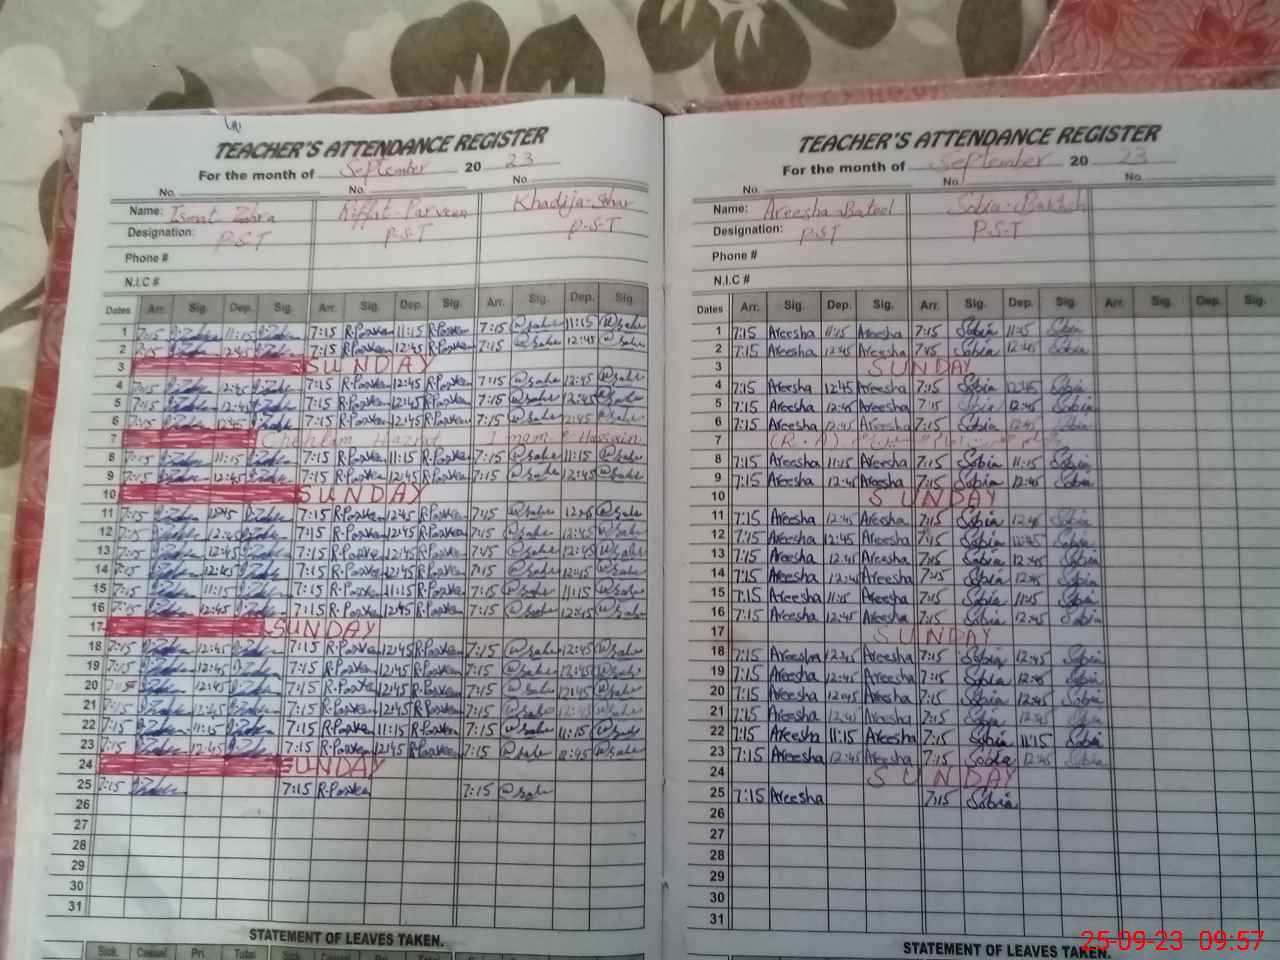 TEACHER'S ATTENDANCE REGISTER
For the month of September 20 23
No. No. No.
Name: Ismat Zahra Riffat-Parveen Khadija-Sahar
Designation: P.S.T P.S.T P.S.T
Phone #
N.I.C #
Dates Arr. Sig. Dep. Sig. Arr. Sig. Dep. Sig. Arr. Sig. Dep. Sig.
1 7:15 11:15 7:15 R.Parveen 11:15 R.Parveen 7:15 @sahar 11:15 @sahar
2 7:15 12:45 7:15 R.Parveen 12:45 R.Parveen 7:15 @sahar 12:45 @sahar
3 SUNDAY
4 7:15 12:45 7:15 R.Parveen 12:45 R.Parveen 7:15 @sahar 12:45 @sahar
5 7:15 12:45 7:15 R.Parveen 12:45 R.Parveen 7:15 @sahar 12:45 @sahar
6 7:15 12:45 7:15 R.Parveen 12:45 R.Parveen 7:15 @sahar 12:45 @sahar
7 Chehlam Hazrat Imam Hussain
8 7:15 11:15 7:15 R.Parveen 11:15 R.Parveen 7:15 @sahar 11:15 @sahar
9 7:15 12:45 7:15 R.Parveen 12:45 R.Parveen 7:15 @sahar 12:45 @sahar
10 SUNDAY
11 7:15 12:45 7:15 R.Parveen 12:45 R.Parveen 7:15 @sahar @sahar
12 7:15 12:45 7:15 R.Parveen 12:45 R.Parveen 7:15 @sahar 12:45 @sahar
13 7:15 12:45 7:15 R.Parveen 12:45 R.Parveen 7:15 @sahar 12:45 @sahar
14 7:15 12:45 7:15 R.Parveen 12:45 R.Parveen 7:15 @sahar 12:45 @sahar
15 7:15 11:15 7:15 R.Parveen 11:15 R.Parveen 7:15 @sahar 11:15 @sahar
16 7:15 12:45 7:15 R.Parveen 12:45 R.Parveen 7:15 @sahar 12:45 @sahar
17 SUNDAY
18 7:15 12:45 7:15 R.Parveen 12:45 R.Parveen 7:15 @sahar 12:45 @sahar
19 7:15 12:45 7:15 R.Parveen 12:45 R.Parveen 7:15 @sahar 12:45 @sahar
20 7:15 12:45 7:15 R.Parveen 12:45 R.Parveen 7:15 @sahar 12:45 @sahar
21 7:15 12:45 7:15 R.Parveen 12:45 R.Parveen 7:15 @sahar 12:45 @sahar
22 7:15 11:15 7:15 R.Parveen 11:15 R.Parveen 7:15 @sahar 11:15 @sahar
23 7:15 12:45 7:15 R.Parveen 12:45 R.Parveen 7:15 @sahar @sahar
24 SUNDAY
25 7:15 7:15 R.Parveen 7:15 @sahar
26
27
28
29
30
31
STATEMENT OF LEAVES TAKEN.
Sick Casual Pri. Total Sick Casual
TEACHER'S ATTENDANCE REGISTER
For the month of September 20 23
No. No. No.
Name: Areesha Batool Sobia-Bakhsh
Designation: P.S.T P.S.T
Phone #
N.I.C #
Dates Arr. Sig. Dep. Sig. Arr. Sig. Dep. Sig. Arr. Sig. Dep. Sig.
1 7:15 Areesha 11:15 Areesha 7:15 Sobia 11:15 Sobia
2 7:15 Areesha 12:45 Areesha 7:15 Sobia 12:45 Sobia
3 SUNDAY
4 7:15 Areesha 12:45 Areesha 7:15 Sobia 12:45 Sobia
5 7:15 Areesha 12:45 Areesha 7:15 Sobia 12:45 Sobia
6 7:15 Areesha 12:45 Areesha 7:15 Sobia 12:45 Sobia
7 (R.A)
8 7:15 Areesha 11:15 Areesha 7:15 Sobia 11:15 Sobia
9 7:15 Areesha 12:45 Areesha 7:15 Sobia 12:45 Sobia
10 SUNDAY
11 7:15 Areesha 12:45 Areesha 7:15 Sobia 12:45 Sobia
12 7:15 Areesha 12:45 Areesha 7:15 Sobia 12:45 Sobia
13 7:15 Areesha 12:45 Areesha 7:15 Sobia 12:45 Sobia
14 7:15 Areesha 12:45 Areesha 7:15 Sobia 12:45 Sobia
15 7:15 Areesha 11:15 Areesha 7:15 Sobia 11:15 Sobia
16 7:15 Areesha 12:45 Areesha 7:15 Sobia 12:45 Sobia
17 SUNDAY
18 7:15 Areesha 12:45 Areesha 7:15 Sobia 12:45 Sobia
19 7:15 Areesha 12:45 Areesha 7:15 Sobia 12:45 Sobia
20 7:15 Areesha 12:45 Areesha 7:15 Sobia 12:45 Sobia
21 7:15 Areesha 12:45 Areesha 7:15 Sobia 12:45 Sobia
22 7:15 Areesha 11:15 Areesha 7:15 Sobia 11:15 Sobia
23 7:15 Areesha 12:45 Areesha 7:15 Sobia 12:45 Sobia
24 SUNDAY
25 7:15 Areesha 7:15 Sobia
26
27
28
29
30
31
STATEMENT OF LEAVES TAKEN.
25-09-23 09:57